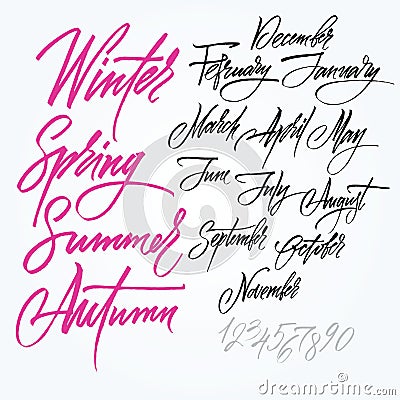 Winter
Spring
Summer
Autumn
December
Fefruary January
March April May
June July August
September October
November
1234567890
dreamstime.com